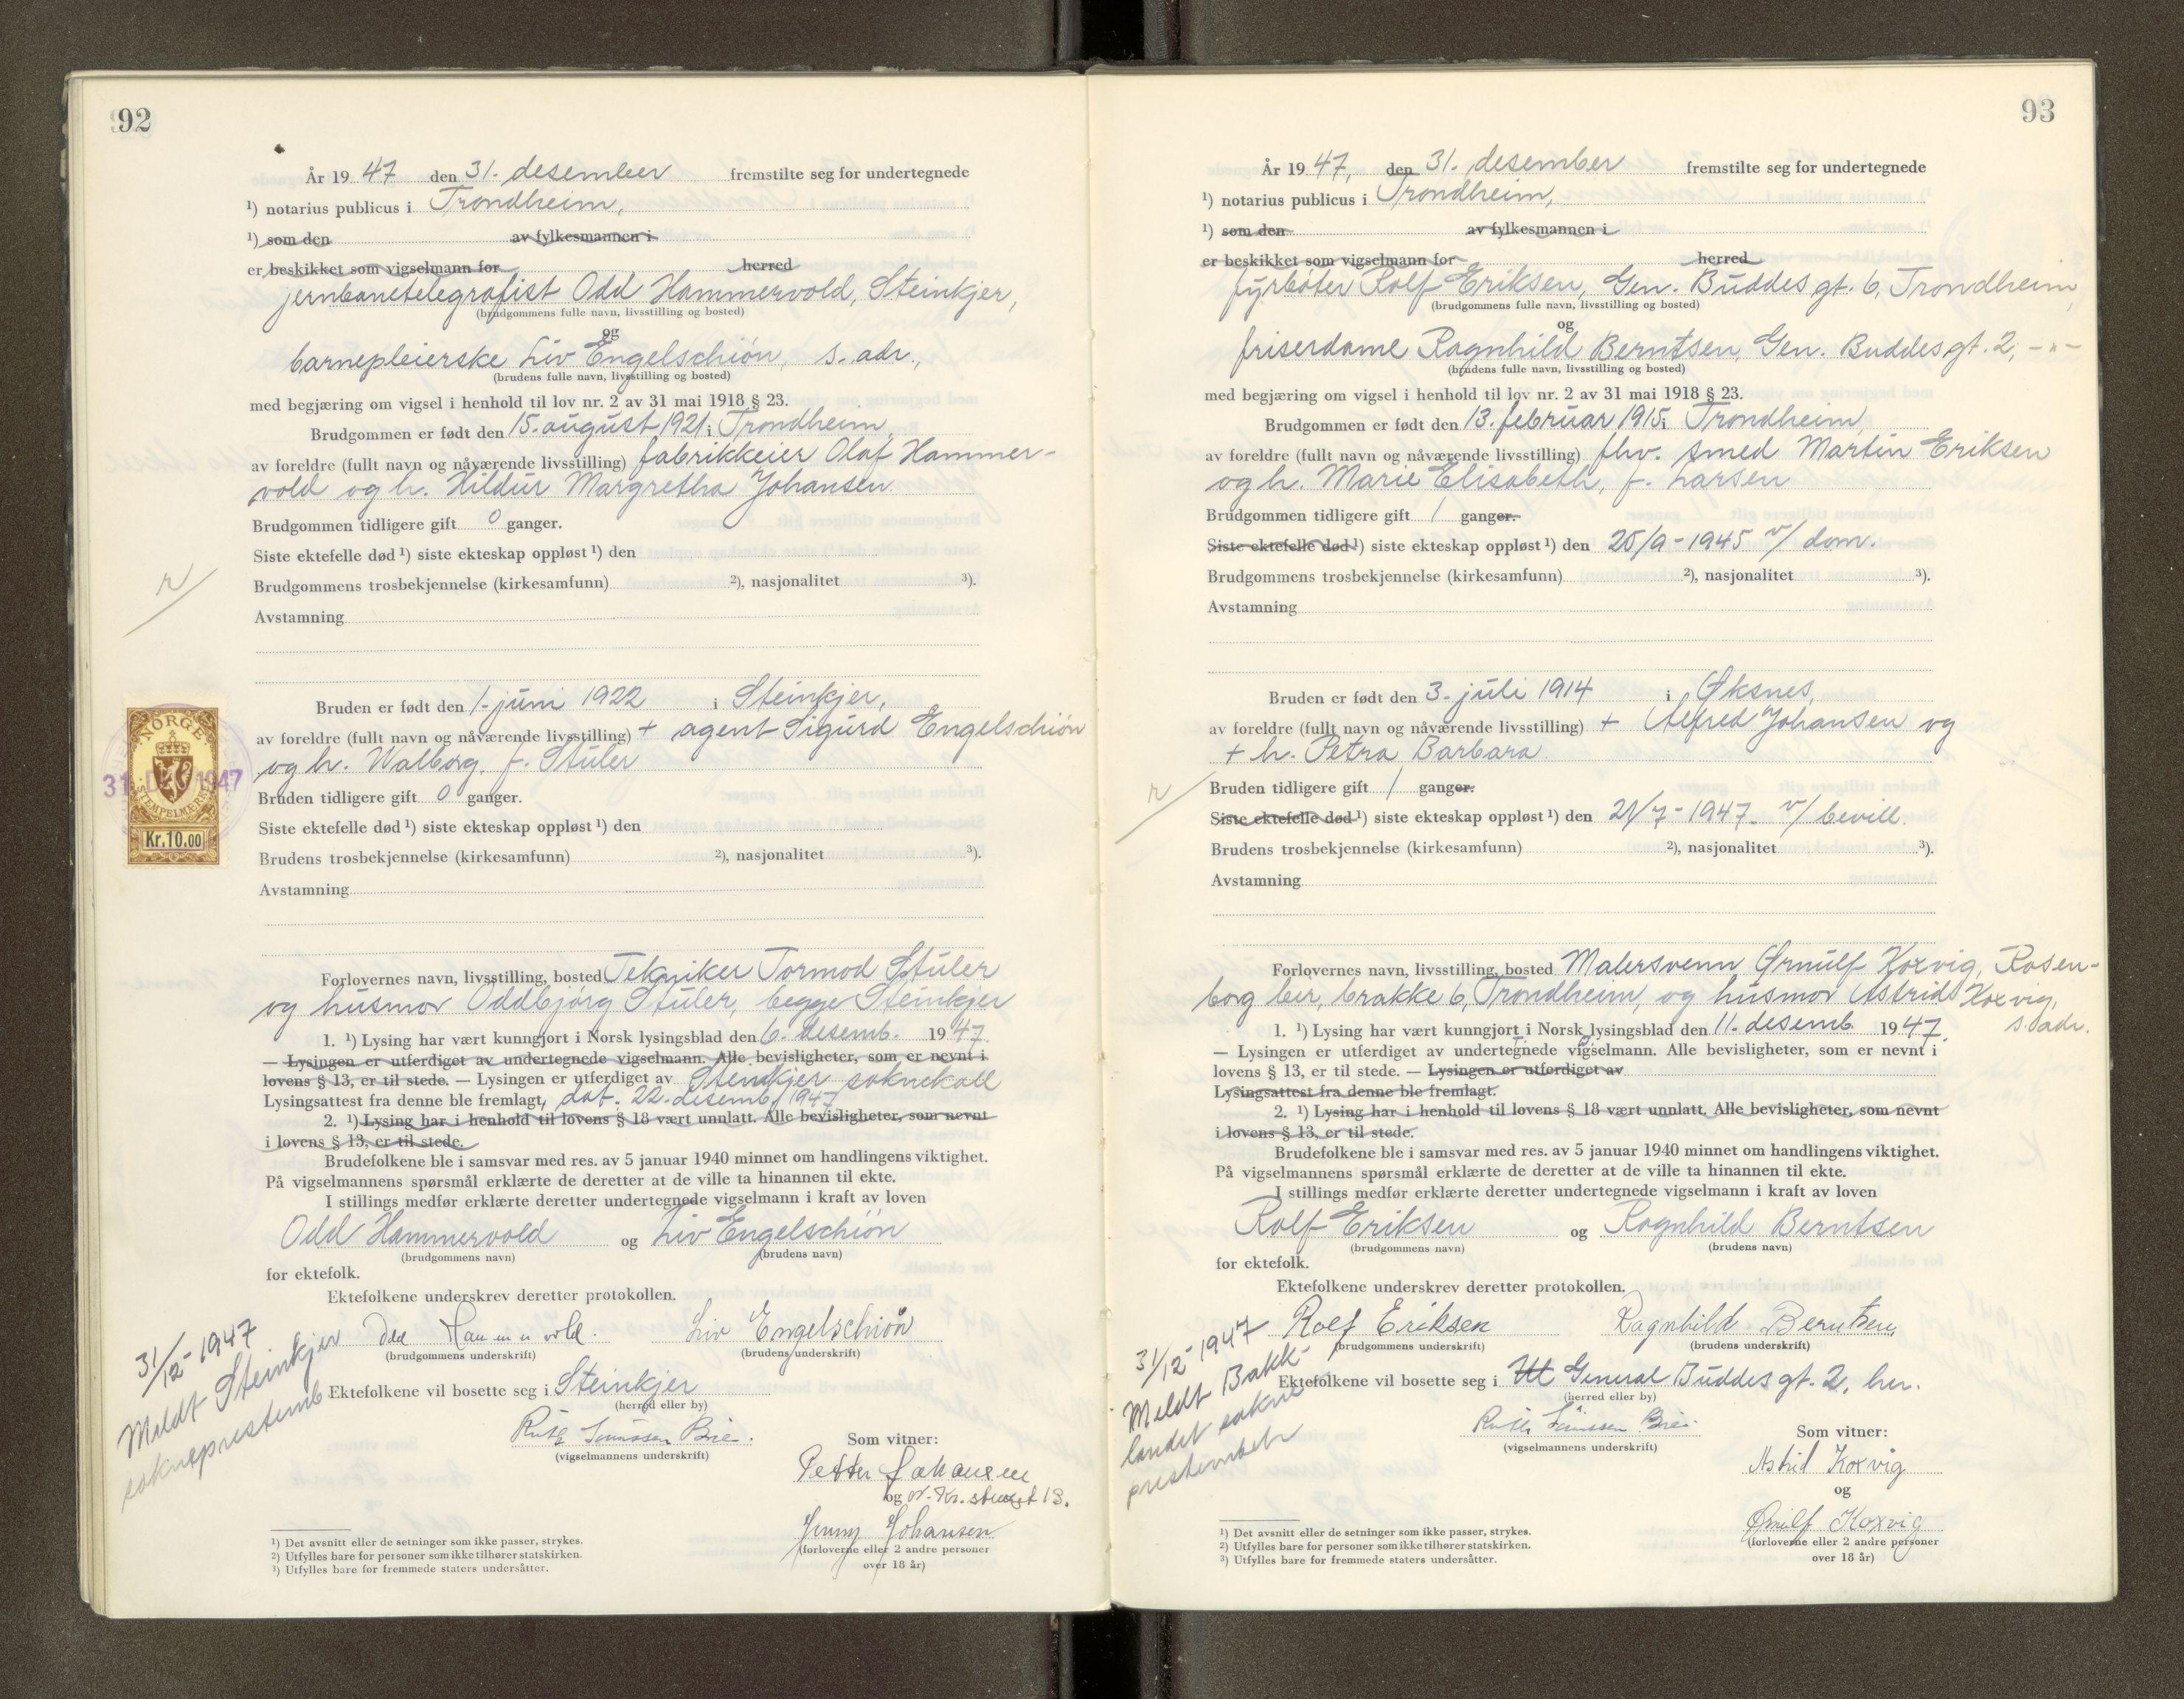 92
År 19 47 den 31. desember fremstilte seg for undertegnede
¹) notarius publicus i Trondheim,
¹) som den av fylkesmannen i
er beskikket som vigselmann for herred
jernbanetelegrafist Odd Hammervold, Steinkjer,
(brudgommens fulle navn, livsstilling og bosted)
og
barnepleierske Liv Engelschiön, s. adr.,
(brudens fulle navn, livsstilling og bosted)
med begjæring om vigsel i henhold til lov nr. 2 av 31 mai 1918 § 23.
Brudgommen er født den 15. august 1921 i Trondheim,
av foreldre (fullt navn og nåværende livsstilling) fabrikkeier Olaf Hammer-
vold og h. Hildur Margretha Johansen.
Brudgommen tidligere gift 0 ganger.
Siste ektefelle død ¹) siste ekteskap oppløst ¹) den
Brudgommens trosbekjennelse (kirkesamfunn) ²), nasjonalitet ³).
Avstamning
Bruden er født den 1. juni 1922 i Steinkjer,
av foreldre (fullt navn og nåværende livsstilling) + agent Sigurd Engelschiön
og h. Walborg, f. Stüler
NORGE
STEMPELMERKE
31. DES 1947
Kr. 10.00
Bruden tidligere gift 0 ganger.
Siste ektefelle død ¹) siste ekteskap oppløst ¹) den
Brudens trosbekjennelse (kirkesamfunn) ²), nasjonalitet ³).
Avstamning
Forlovernes navn, livsstilling, bosted Tekniker Tormod Stüler
og husmor Oddbjörg Stüler, begge Steinkjer
1. ¹) Lysing har vært kunngjort i Norsk lysingsblad den 6. desemb. 1947
— Lysingen er utferdiget av undertegnede vigselmann. Alle bevisligheter, som er nevnt i
lovens § 13, er til stede. — Lysingen er utferdiget av Steinkjer soknekall
Lysingsattest fra denne ble fremlagt, dat. 22. desemb. 1947
2. ¹) Lysing har i henhold til lovens § 18 vært unnlatt. Alle bevisligheter, som nevnt
i lovens § 13, er til stede.
Brudefolkene ble i samsvar med res. av 5 januar 1940 minnet om handlingens viktighet.
På vigselmannens spørsmål erklærte de deretter at de ville ta hinannen til ekte.
I stillings medfør erklærte deretter undertegnede vigselmann i kraft av loven
Odd Hammervold og Liv Engelschiön
(brudgommens navn) (brudens navn)
for ektefolk.
Ektefolkene underskrev deretter protokollen.
Odd Hammervold. Liv Engelschiön
(brudgommens underskrift) (brudens underskrift)
31/12-1947
Meldt Steinkjer
sokneprestemb.
Ektefolkene vil bosette seg i Steinkjer
(herred eller by)
(vigselmannens underskrift)
Som vitner:
Petter Johansen
og
Jenny Johansen
(forloverne eller 2 andre personer
over 18 år)
¹) Det avsnitt eller de setninger som ikke passer, strykes.
²) Utfylles bare for personer som ikke tilhører statskirken.
³) Utfylles bare for fremmede staters undersåtter.
93
År 19 47, den 31. desember fremstilte seg for undertegnede
¹) notarius publicus i Trondheim,
¹) som den av fylkesmannen i
er beskikket som vigselmann for herred
fyrbøter Rolf Eriksen, Gen. Buddes gt. 6, Trondheim,
(brudgommens fulle navn, livsstilling og bosted)
og
friserdame Ragnhild Berntsen, Gen. Buddes gt. 2, -"-
(brudens fulle navn, livsstilling og bosted)
med begjæring om vigsel i henhold til lov nr. 2 av 31 mai 1918 § 23.
Brudgommen er født den 13. februar 1915 i Trondheim,
av foreldre (fullt navn og nåværende livsstilling) fhv. smed Martin Eriksen
og h. Marie Elisabeth, f. Larsen
Brudgommen tidligere gift 1 ganger.
Siste ektefelle død ¹) siste ekteskap oppløst ¹) den 25/9-1945 v/ dom.
Brudgommens trosbekjennelse (kirkesamfunn) ²), nasjonalitet ³).
Avstamning
Bruden er født den 3. juli 1914 i Øksnes,
av foreldre (fullt navn og nåværende livsstilling) + Alfred Johansen og
+ h. Petra Barbara
Bruden tidligere gift 1 ganger.
Siste ektefelle død ¹) siste ekteskap oppløst ¹) den 21/7-1947. v/ bevill.
Brudens trosbekjennelse (kirkesamfunn) ²), nasjonalitet ³).
Avstamning
Forlovernes navn, livsstilling, bosted Malersvenn Ørnulf Koxvig, Rosen-
borg leir, brakke 6, Trondheim, og husmor Astrid Koxvig,
s. adr.
1. ¹) Lysing har vært kunngjort i Norsk lysingsblad den 11. desemb 1947.
— Lysingen er utferdiget av undertegnede vigselmann. Alle bevisligheter, som er nevnt i
lovens § 13, er til stede. — Lysingen er utferdiget av
Lysingsattest fra denne ble fremlagt.
2. ¹) Lysing har i henhold til lovens § 18 vært unnlatt. Alle bevisligheter, som nevnt
i lovens § 13, er til stede.
Brudefolkene ble i samsvar med res. av 5 januar 1940 minnet om handlingens viktighet.
På vigselmannens spørsmål erklærte de deretter at de ville ta hinannen til ekte.
I stillings medfør erklærte deretter undertegnede vigselmann i kraft av loven
Rolf Eriksen og Ragnhild Berntsen
(brudgommens navn) (brudens navn)
for ektefolk.
Ektefolkene underskrev deretter protokollen.
Rolf Eriksen Ragnhild Berntsen
(brudgommens underskrift) (brudens underskrift)
31/12-1947
Meldt Bakk-
landet sokne
prestembete
Ektefolkene vil bosette seg i General Buddes gt. 2, her.
(herred eller by)
(vigselmannens underskrift)
Som vitner:
Astrid Koxvig
og
Ørnulf Koxvig
(forloverne eller 2 andre personer
over 18 år)
¹) Det avsnitt eller de setninger som ikke passer, strykes.
²) Utfylles bare for personer som ikke tilhører statskirken.
³) Utfylles bare for fremmede staters undersåtter.